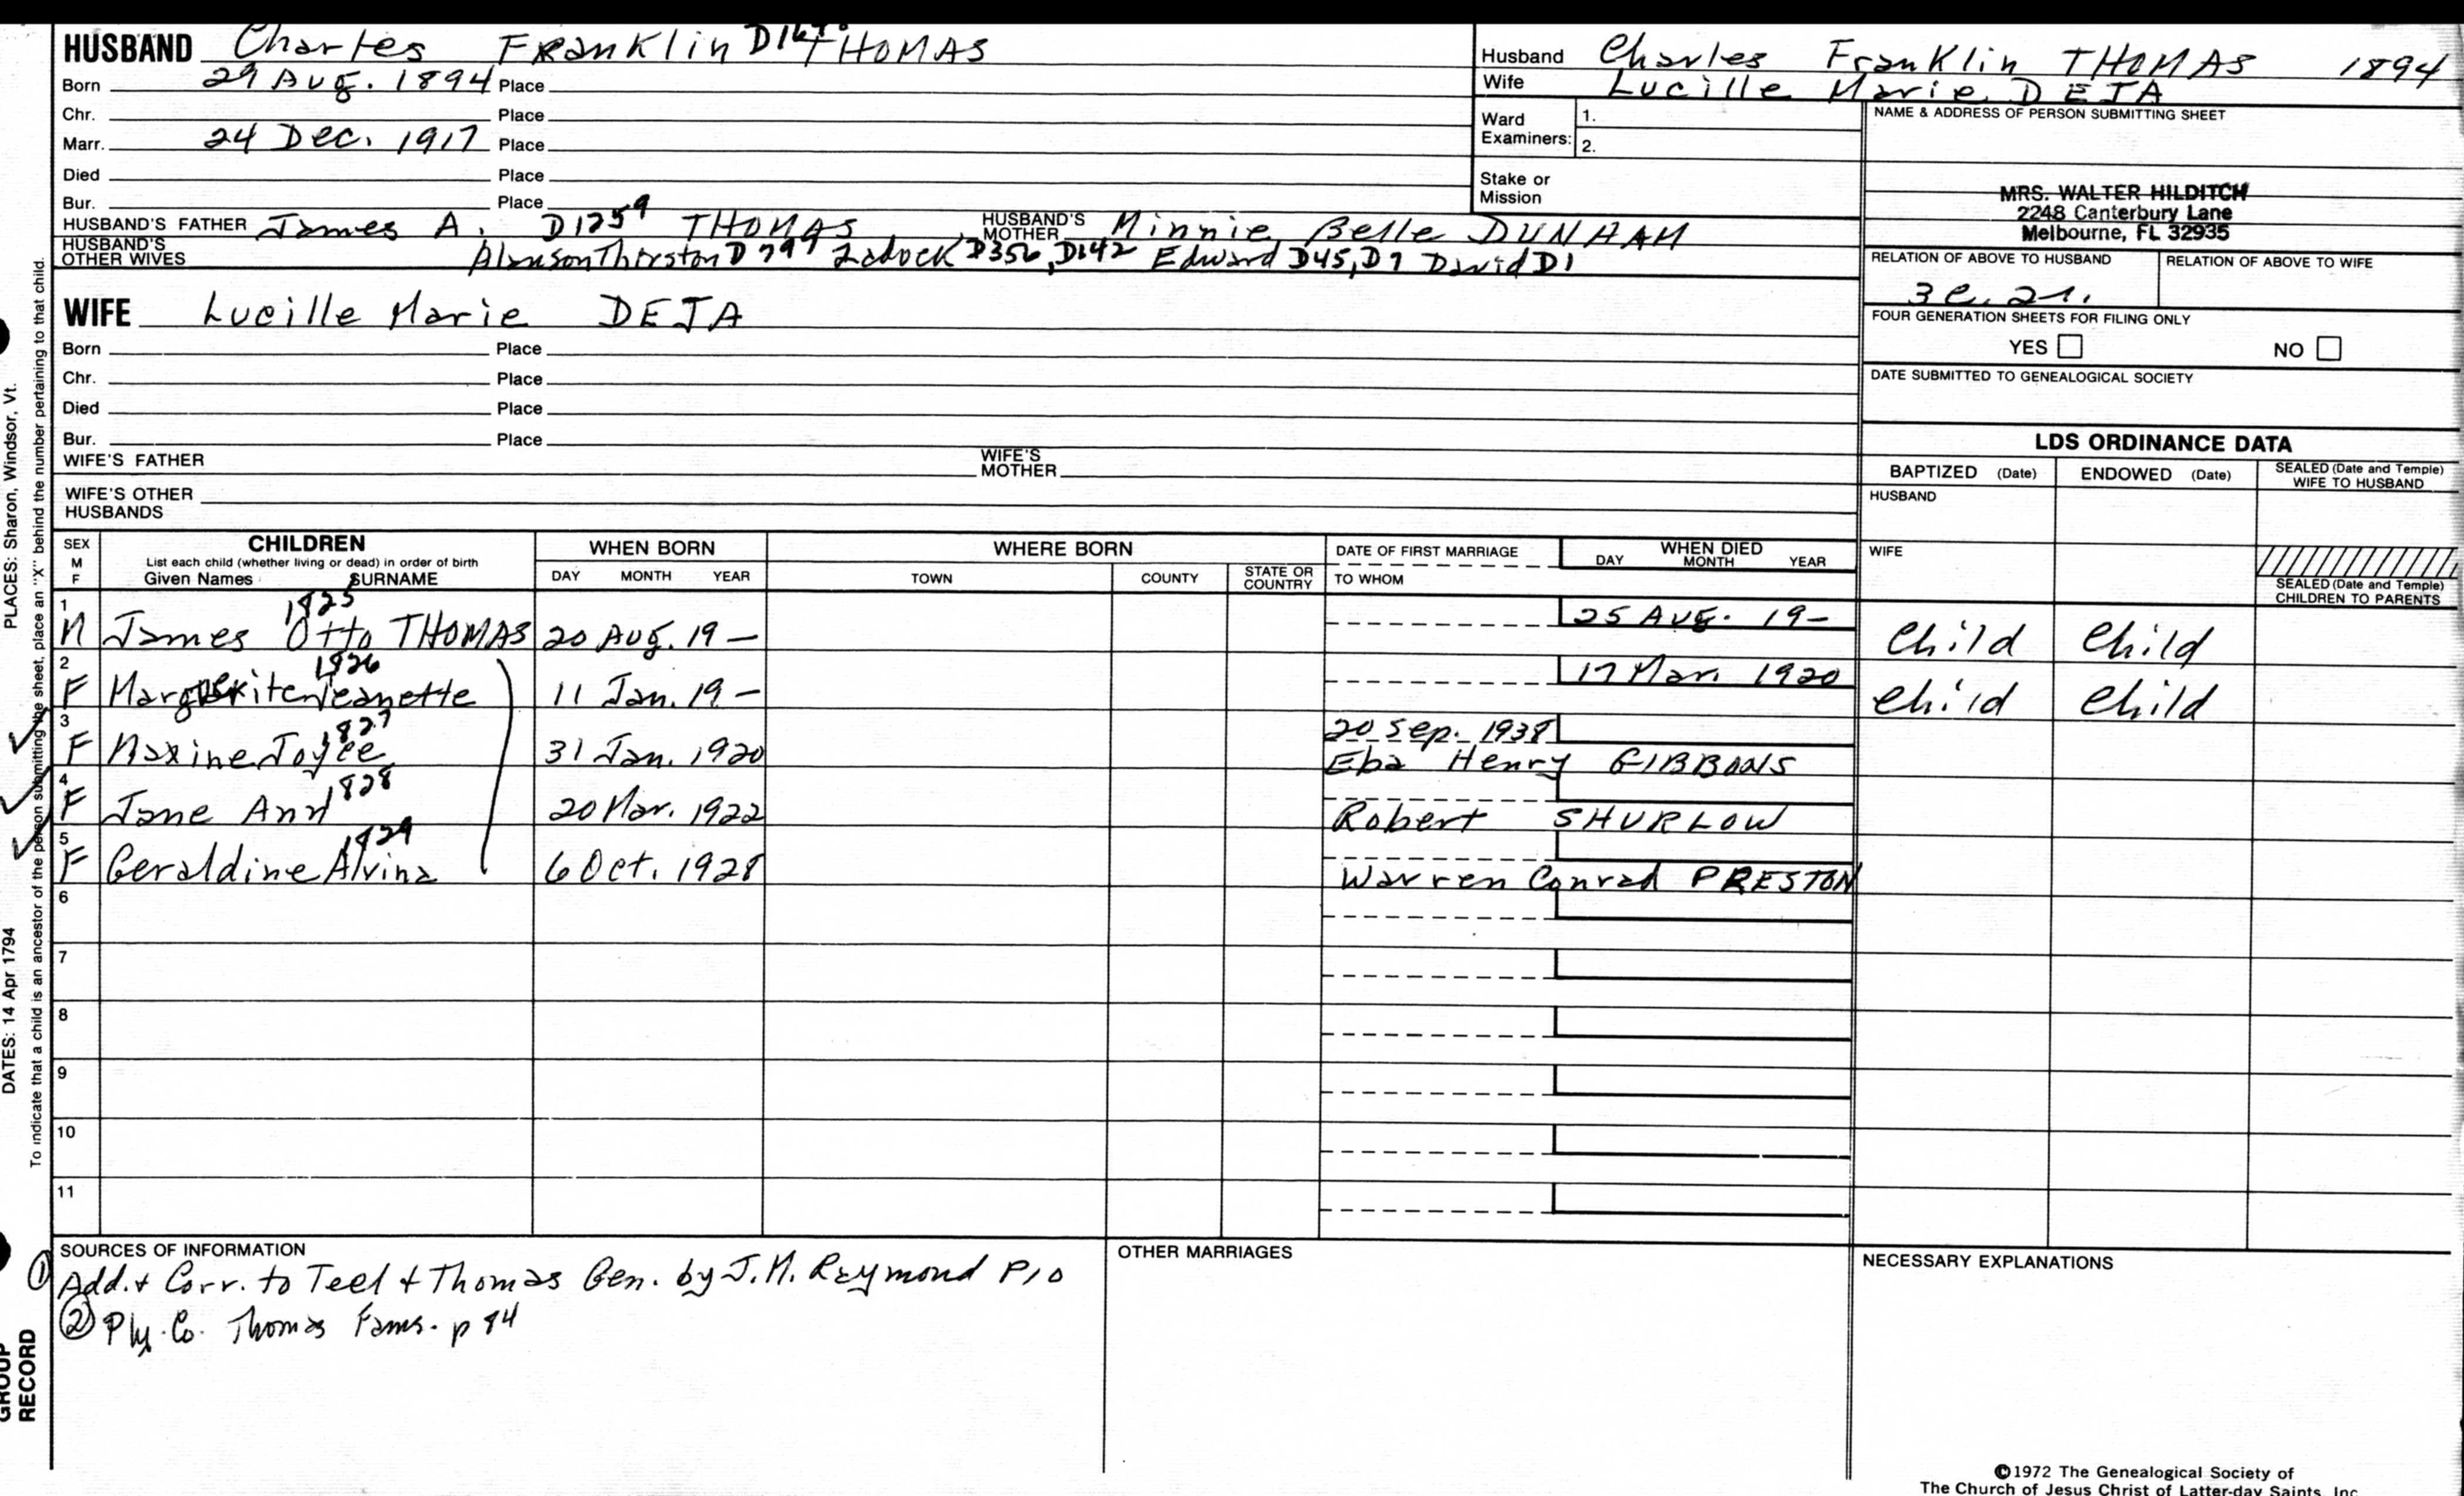 HUSBAND Charles Franklin THOMAS
Born 29 Aug. 1894 Place
Chr. Place
Marr. 24 Dec. 1917 Place
Died Place
Bur. Place
HUSBAND'S FATHER James A. D1259 THOMAS HUSBAND'S MOTHER Minnie Belle DUNHAM
HUSBAND'S OTHER WIVES Alanson Thirston D799 Zadock D356, D142 Edward D45, D7 David D1
WIFE Lucille Marie DEJA
Born Place
Chr. Place
Died Place
Bur. Place
WIFE'S FATHER WIFE'S MOTHER
WIFE'S OTHER HUSBANDS
Husband Charles Franklin THOMAS 1894
Wife Lucille Marie DEJA
Ward Examiners: 1.
2.
Stake or Mission
NAME & ADDRESS OF PERSON SUBMITTING SHEET
MRS. WALTER HILDITCH
2248 Canterbury Lane
Melbourne, FL 32935
RELATION OF ABOVE TO HUSBAND RELATION OF ABOVE TO WIFE
FOUR GENERATION SHEETS FOR FILING ONLY
YES NO
DATE SUBMITTED TO GENEALOGICAL SOCIETY
LDS ORDINANCE DATA
BAPTIZED (Date) ENDOWED (Date) SEALED (Date and Temple) WIFE TO HUSBAND
HUSBAND
WIFE
SEALED (Date and Temple) CHILDREN TO PARENTS
SEX M F
CHILDREN
List each child (whether living or dead) in order of birth
Given Names SURNAME
WHEN BORN
DAY MONTH YEAR
WHERE BORN
TOWN COUNTY STATE OR COUNTRY
DATE OF FIRST MARRIAGE
TO WHOM
WHEN DIED
DAY MONTH YEAR
1 M James Otto THOMAS 1825 20 Aug. 19– 25 Aug. 19– Child Child
2 F Marguerite Jeanette 1826 11 Jan. 19– 17 Mar. 1920 Child Child
3 F Maxine Joyce 1827 31 Jan. 1920 20 Sep. 1938
Eba Henry GIBBONS
4 F Jane Ann 1828 20 Mar. 1922 Robert SHURLOW
5 F Geraldine Alvina 1829 6 Oct. 1928 Warren Conrad PRESTON
6
7
8
9
10
11
SOURCES OF INFORMATION
① Add. & Corr. to Teel & Thomas Gen. by J.M. Raymond P10
② Ply. Co. Thomas Fams. p 84
OTHER MARRIAGES
NECESSARY EXPLANATIONS
©1972 The Genealogical Society of
The Church of Jesus Christ of Latter-day Saints, Inc.
PLACES: Sharon, Windsor, Vt.
DATES: 14 Apr 1794
To indicate that a child is an ancestor of the person submitting the sheet, place an "X" behind the number pertaining to that child.
GROUP
RECORD